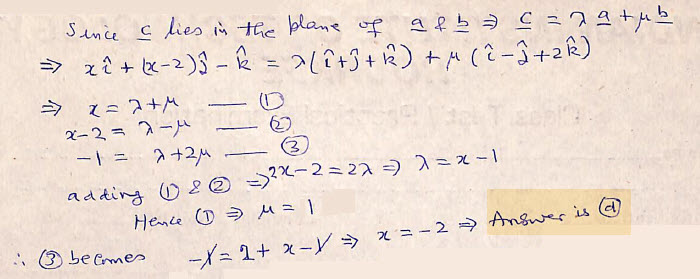 Since c lies in the plane of a & b ⇒ c = λ a + μ b
⇒ x î + (x-2) ĵ - k̂ = λ(î + ĵ + k̂) + μ (î - ĵ + 2k̂)
⇒ x = λ + μ — ①
x - 2 = λ - μ — ②
-1 = λ + 2μ — ③
adding ① & ② ⇒ 2x - 2 = 2λ ⇒ λ = x - 1
Hence ① ⇒ μ = 1
∴ ③ becomes -1 = 2 + x - 1 ⇒ x = -2 ⇒ Answer is ⓓ